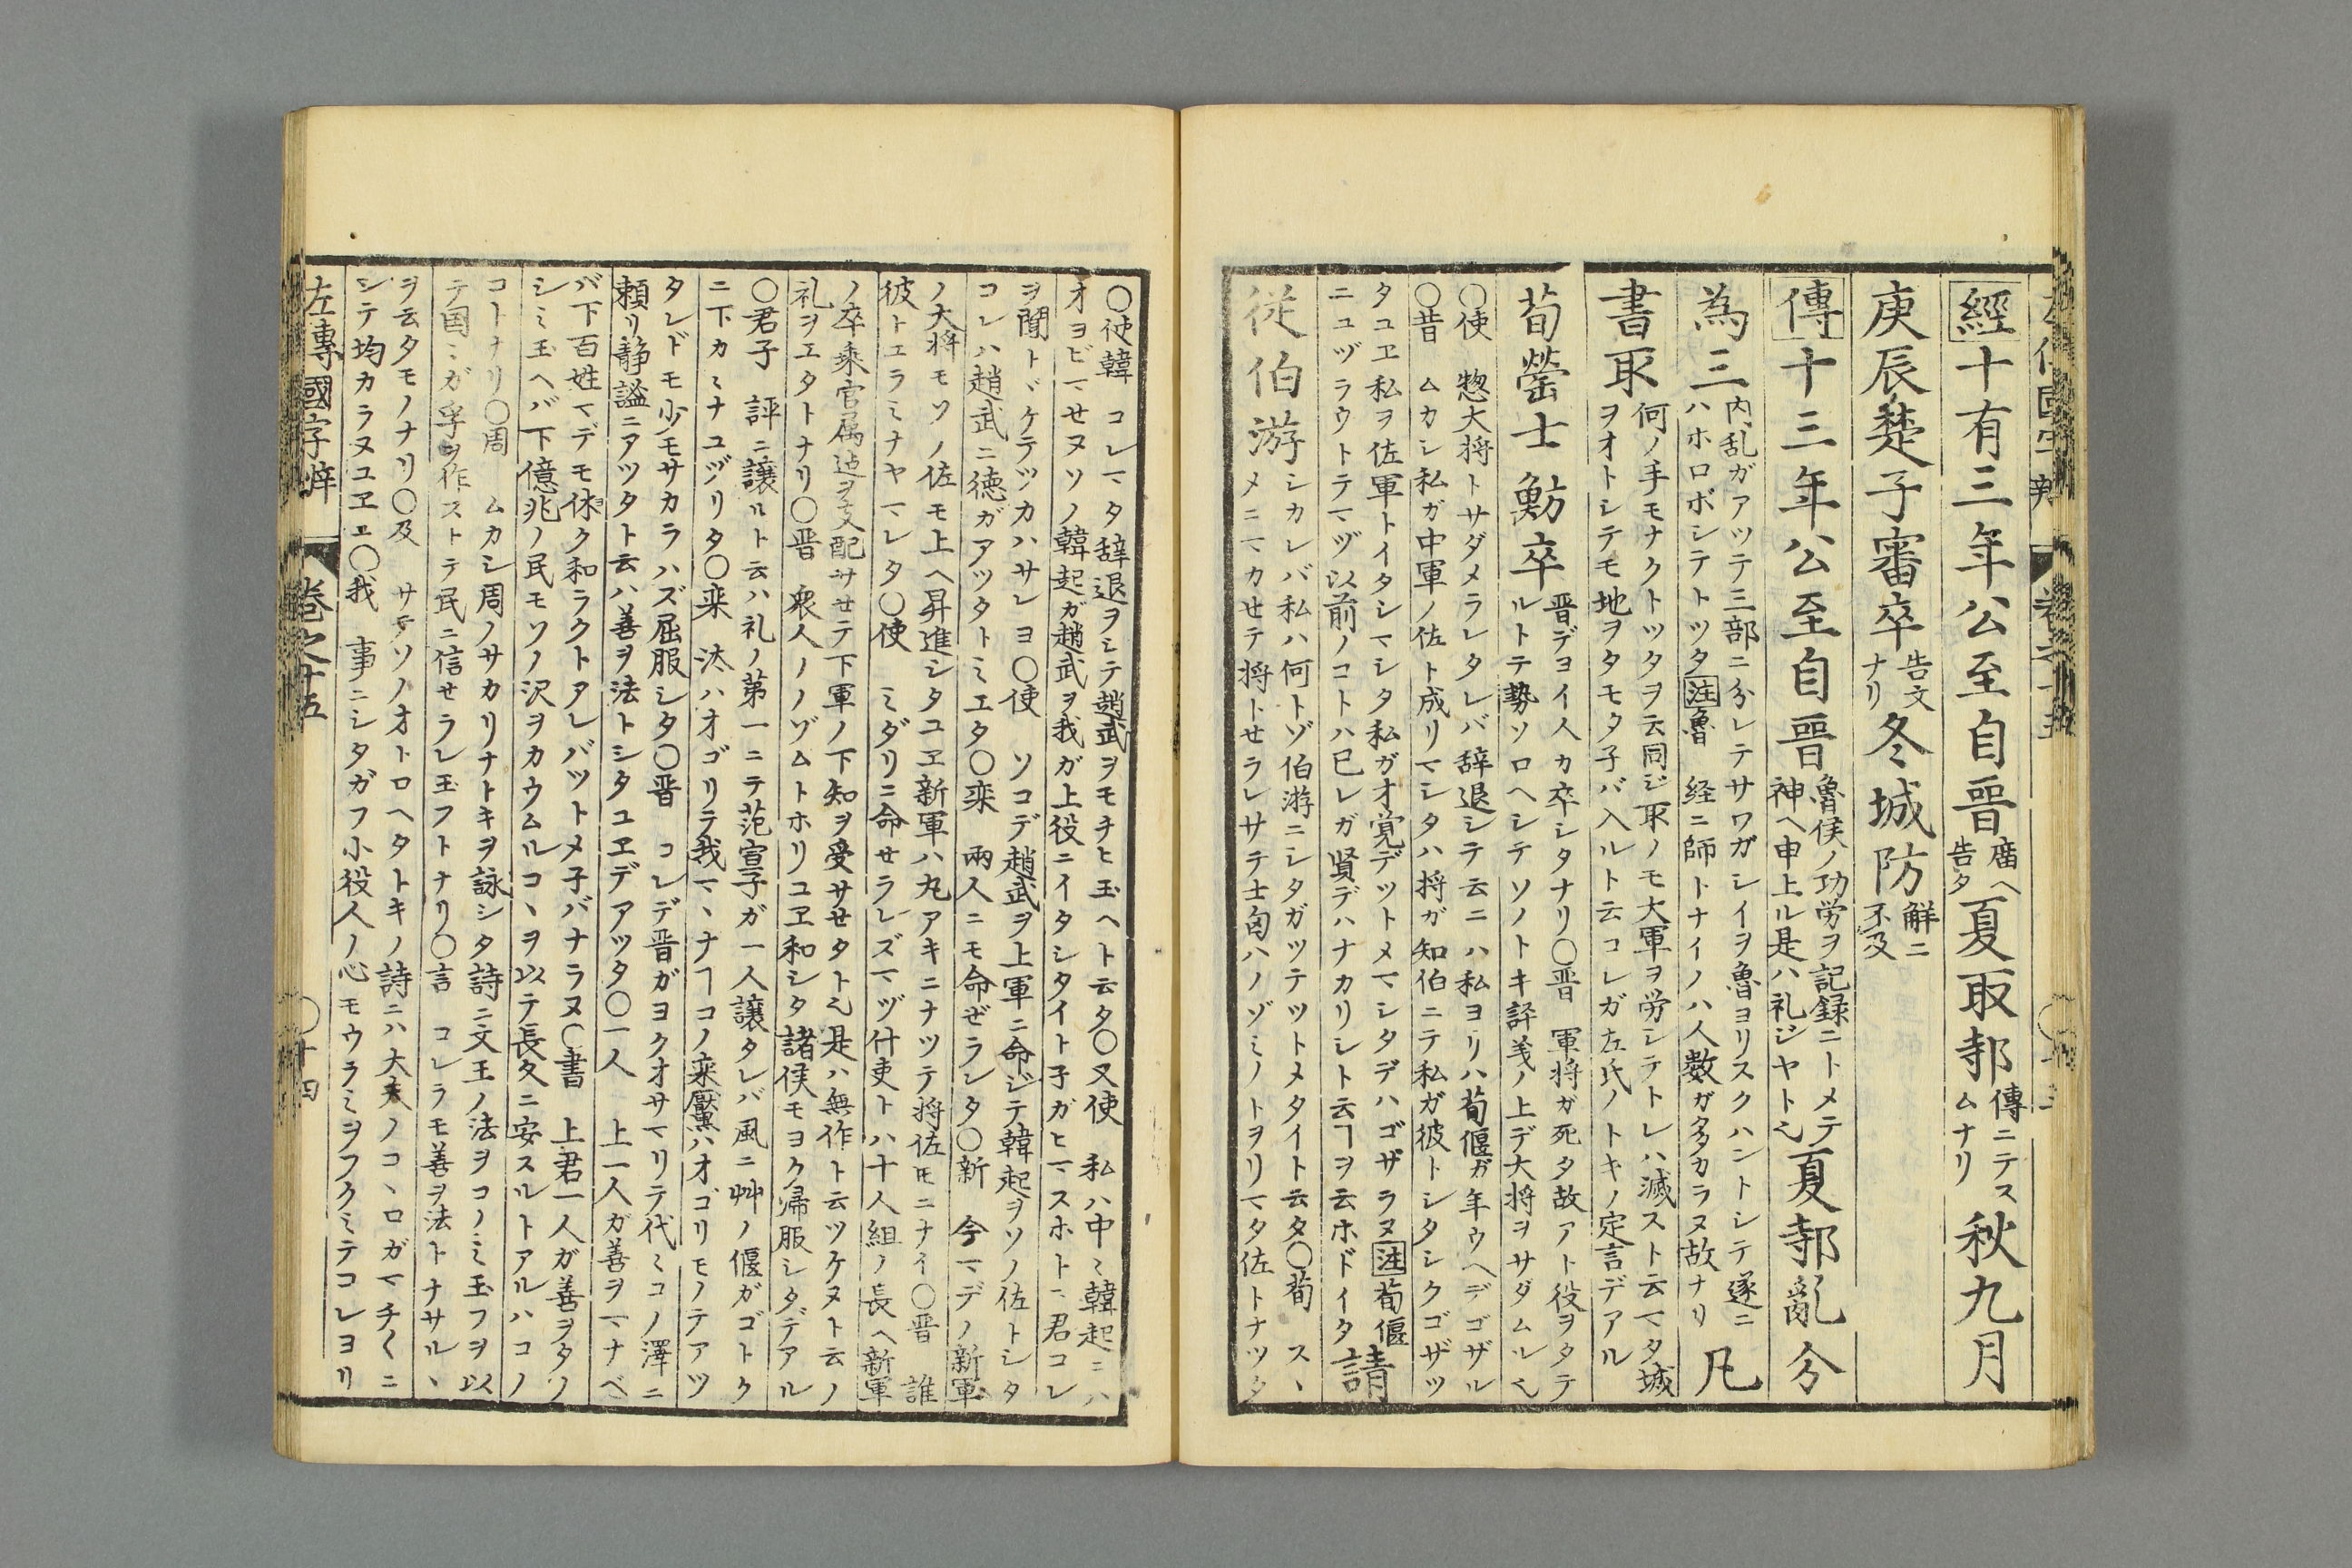 經十有三年公至自晋廣ヘ告夕夏取邿傳ニテスムナリ秋九月
庚辰楚子審卒告文ナリ冬城防解ニ不及
傳十三年公至自晋魯侯ノ功労ヲ記録ニトメテ神ヘ申上ル是ハ礼ジヤト也夏邿亂分
為三内乱ガアツテ三部ニ分レテサワガシイヲ魯ヨリスクハントシテ遂ニハホロボシテトツタ注魯　経ニ師トナイノハ人数ガ多カラヌ故ナリ凡
書取何ノ手モナクトツタヲ云同ジ取ノモ大軍ヲ労シテトレハ滅スト云マタ城ヲオトシテモ地ヲタモタ子バ入ルト云コレガ左氏ノトキノ定言デアル
荀罃士魴卒晋デヨイ人カ卒シタナリ〇晋　軍将ガ死タ故アト役ヲタテルトテ勢ソロヘシテソノトキ評義ノ上デ大将ヲサダムル也
〇使　惣大将トサダメラレタレバ辞退シテ云ニハ私ヨリハ荀偃ガ年ウヘデゴザル
〇昔　ムカシ私ガ中軍ノ佐ト成リマシタハ将ガ知伯ニテ私ガ彼トシタシクゴザツ
タユヱ私ヲ佐軍トイタシマシタ私ガ才覚デツトメマシタデハゴザラヌ注荀偃
ニユヅラウトテマヅ以前ノコトハ已レガ賢デハナカリシト云ヿヲ云ホドイタ請
従伯游シカレバ私ハ何トゾ伯游ニシタガツテツトメタイト云タ〇荀　スヽメニマカせテ将トせラレサテ士匄ハノゾミノトヲリマタ佐トナツタ
〇使韓　コレマタ辞退ヲシテ趙武ヲモチヒ玉ヘト云タ〇又使　私ハ中々韓起ニハ
オヨビマせヌソノ韓起ガ趙武ヲ我ガ上役ニイタシタイト子ガヒマスホトニ君コレ
ヲ聞トヾケテツカハサレヨ〇使　ソコデ趙武ヲ上軍ニ命ジテ韓起ヲソノ佐トシタ
コレハ趙武ニ徳ガアツタトミエタ〇欒　兩人ニモ命ぜラレタ〇新　今マデノ新軍
ノ大将モソノ佐モ上ヘ昇進シタユヱ新軍ハ丸アキニナツテ将佐トモニナイ〇晋　誰
彼トエラミナヤマレタ〇使　ミダリニ命せラレズマヅ什吏トハ十人組ノ長ヘ新軍
ノ卒乗官属迠ヲ支配サせテ下軍ノ下知ヲ受サせタト也是ハ無作ト云ツケヌト云ノ
礼ヲエタトナリ〇晋　衆人ノノゾムトホリユヱ和シタ諸侯モヨク帰服シタデアル
〇君子　評ニ譲ルト云ハ礼ノ第一ニテ范宣子ガ一人譲タレバ風ニ艸ノ偃ガゴトク
ニ下カミナユヅリタ〇欒　汰ハオゴリヲ我マヽナヿコノ欒黶ハオゴリモノテアツ
タレドモ少モサカラハズ屈服シタ〇晋　コレデ晋ガヨクオサマリテ代々コノ澤ニ
頼リ静謐ニアツタト云ハ善ヲ法トシタユヱデアツタ〇一人　上一人ガ善ヲマナベ
バ下百姓マデモ休ク和ラクトアレバツトメ子バナラヌ〇書　上君一人ガ善ヲタノ
シミ玉ヘバ下億兆ノ民モソノ沢ヲカウムルコヽヲ以テ長久ニ安スルトアルハコノ
コトナリ〇周　ムカシ周ノサカリナトキヲ詠シタ詩ニ文王ノ法ヲコノミ玉フヲ以
テ国々ガ孚ヲ作ストテ民ニ信せラレ玉フトナリ〇言　コレラモ善ヲ法トナサルヽ
ヲ云タモノナリ〇及　サテソノオトロヘタトキノ詩ニハ大夫ノコヽロガマチ〱ニ
シテ均カラヌユヱヱ〇我　事ニシタガフ小役人ノ心モウラミヲフクミテコレヨリ
左傳國字辨　巻之十五　〇十四